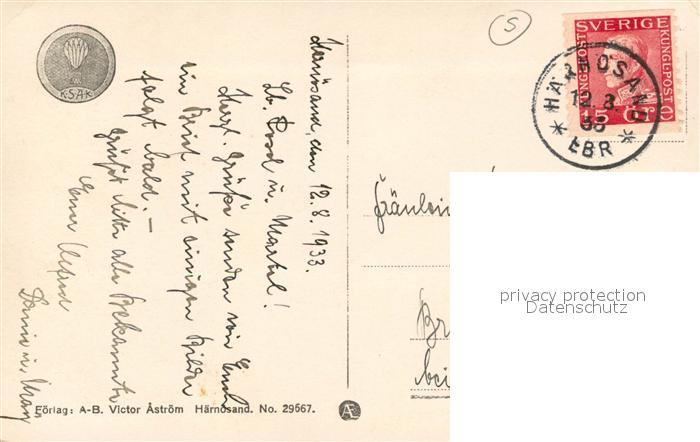 K.S.A.K.
Härnösand, den 12.8.1933.
Lb. u. Martel!
Herzl. Grüße senden wir Euch
ein Brief mit einigen Bilder
folgt bald. –
Grüßt bitte alle Bekannte
Euer Alfred
u.
Förlag: A-B. Victor Åström Härnösand. No. 29667.
Æ
S
SVERIGE
KUNGL·POST
HÄRNÖSAND
12.8.
33
LBR
Fräulein
Br
bei
privacy protection
Datenschutz